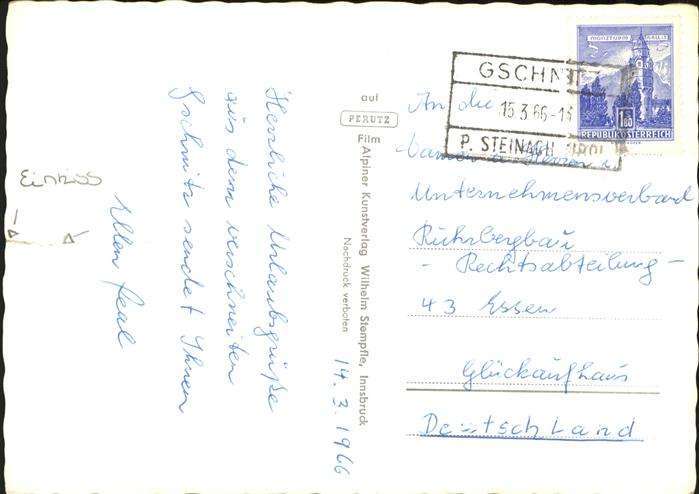 Herzliche Urlaubsgrüße
aus dem verschneiten
Gschnitz sendet Ihnen
Ellen
14. 3. 1966
auf
PERUTZ
Film
Alpiner Kunstverlag Wilhelm Stempfle, Innsbruck
Nachdruck verboten
GSCHN
15.3.66-1
P. STEINACH TIROL
MÜNZTURM HALL I.T.
1.80
REPUBLIK ÖSTERREICH
An die
Damen u. Herren v.
Unternehmensverband
Ruhrbergbau
- Rechtsabteilung -
43 Essen
Glückaufhaus
Deutschland